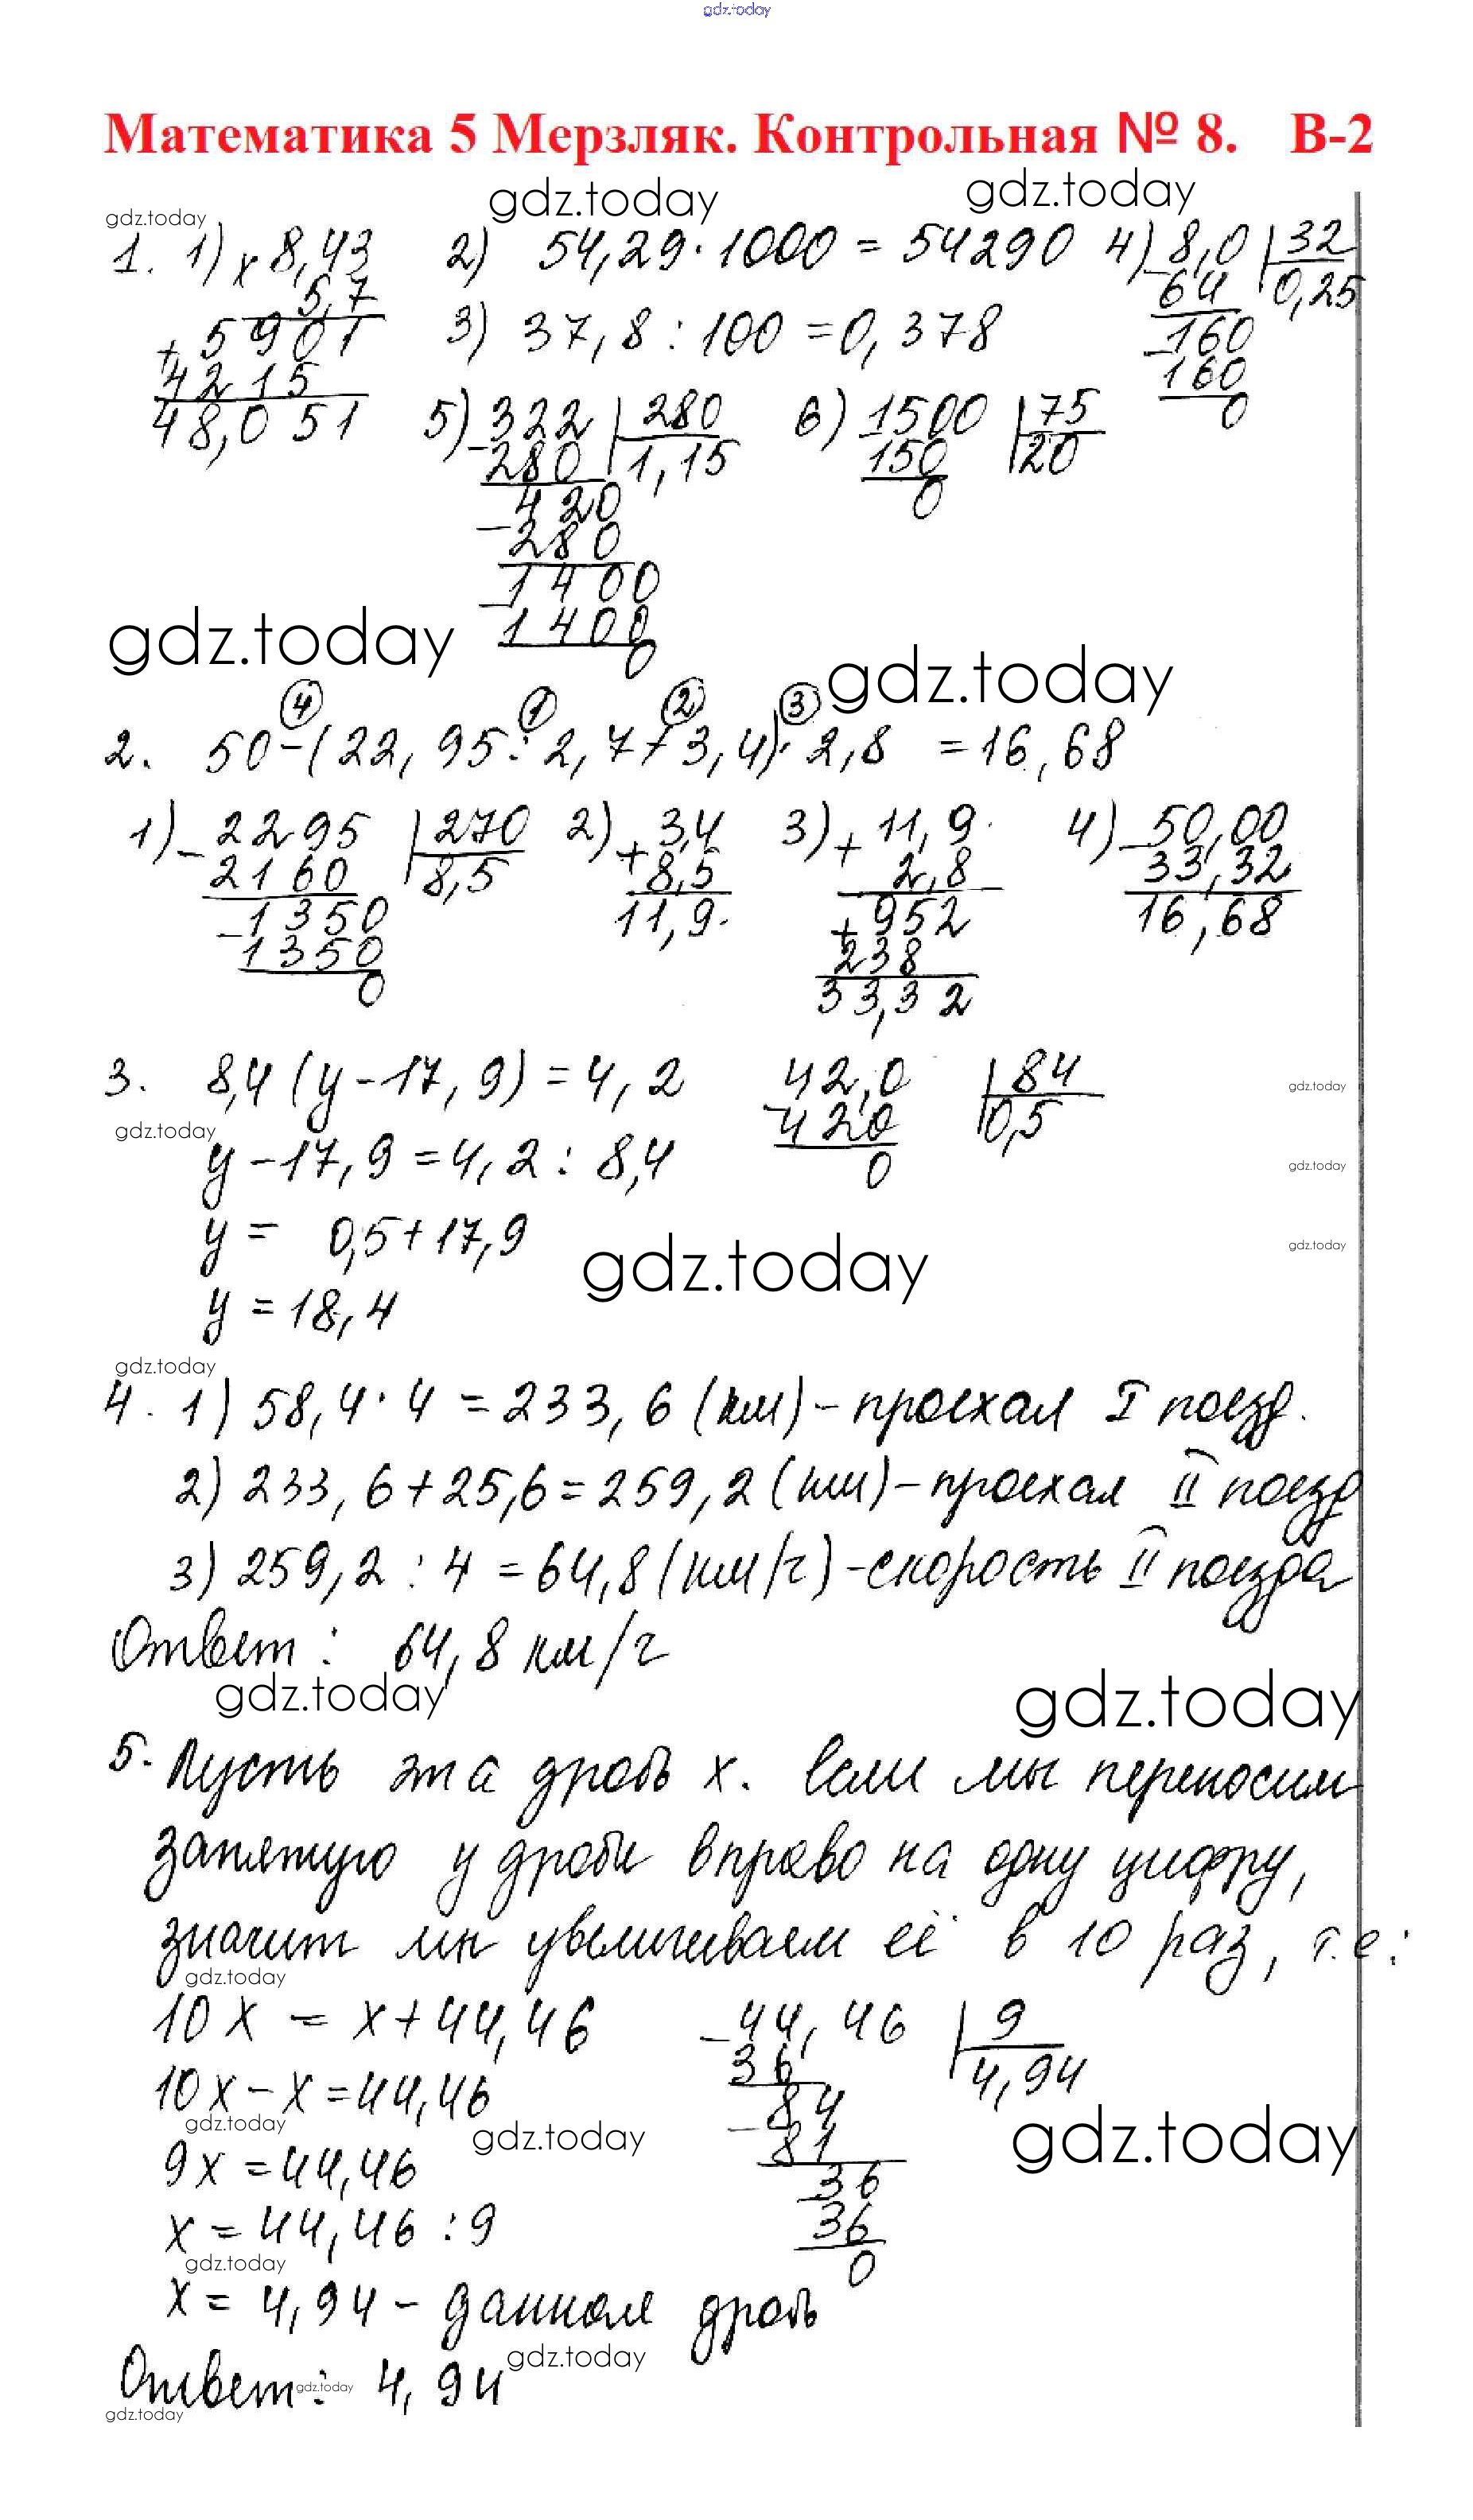 gdz.today
Математика 5 Мерзляк. Контрольная № 8. В-2
gdz.today gdz.today gdz.today
1. 1) × 8,43 2) 54,29 · 1000 = 54290 4) 8,0 | 32
5,7 − 64 0,25
+ 5901 3) 37,8 : 100 = 0,378 − 160
4215 160
48,051 5) − 322 | 280 6) 1500 | 75 0
280 1,15 150 20
420 0
− 280
− 1400
1400
0
gdz.today gdz.today
④ ① ② ③
2. 50 − (22,95 : 2,7 + 3,4) · 2,8 = 16,68
1) − 2295 | 270 2) + 3,4 3) + 11,9 4) − 50,00
2160 8,5 8,5 2,8 33,32
− 1350 11,9 + 952 16,68
1350 238
0 33,32
3. 8,4 (y − 17,9) = 4,2 42,0 | 84
gdz.today
gdz.today − 420 0,5
y − 17,9 = 4,2 : 8,4 0
gdz.today
y = 0,5 + 17,9
gdz.today
gdz.today
y = 18,4
gdz.today
4. 1) 58,4 · 4 = 233,6 (км) − проехал I поезд.
2) 233,6 + 25,6 = 259,2 (км) − проехал II поезд
3) 259,2 : 4 = 64,8 (км/ч) − скорость II поезда
Ответ: 64,8 км/ч
gdz.today gdz.today
5. Пусть эта дробь x. Если мы переносим
запятую у дроби вправо на одну цифру,
значит мы увеличиваем её в 10 раз, т.е:
gdz.today
10x = x + 44,46 − 44,46 | 9
36 4,94
10x − x = 44,46 − 84
gdz.today gdz.today 81 gdz.today
9x = 44,46 − 36
x = 44,46 : 9 36
gdz.today 0
x = 4,94 − данная дробь
gdz.today
Ответ: 4,94
gdz.today
gdz.today